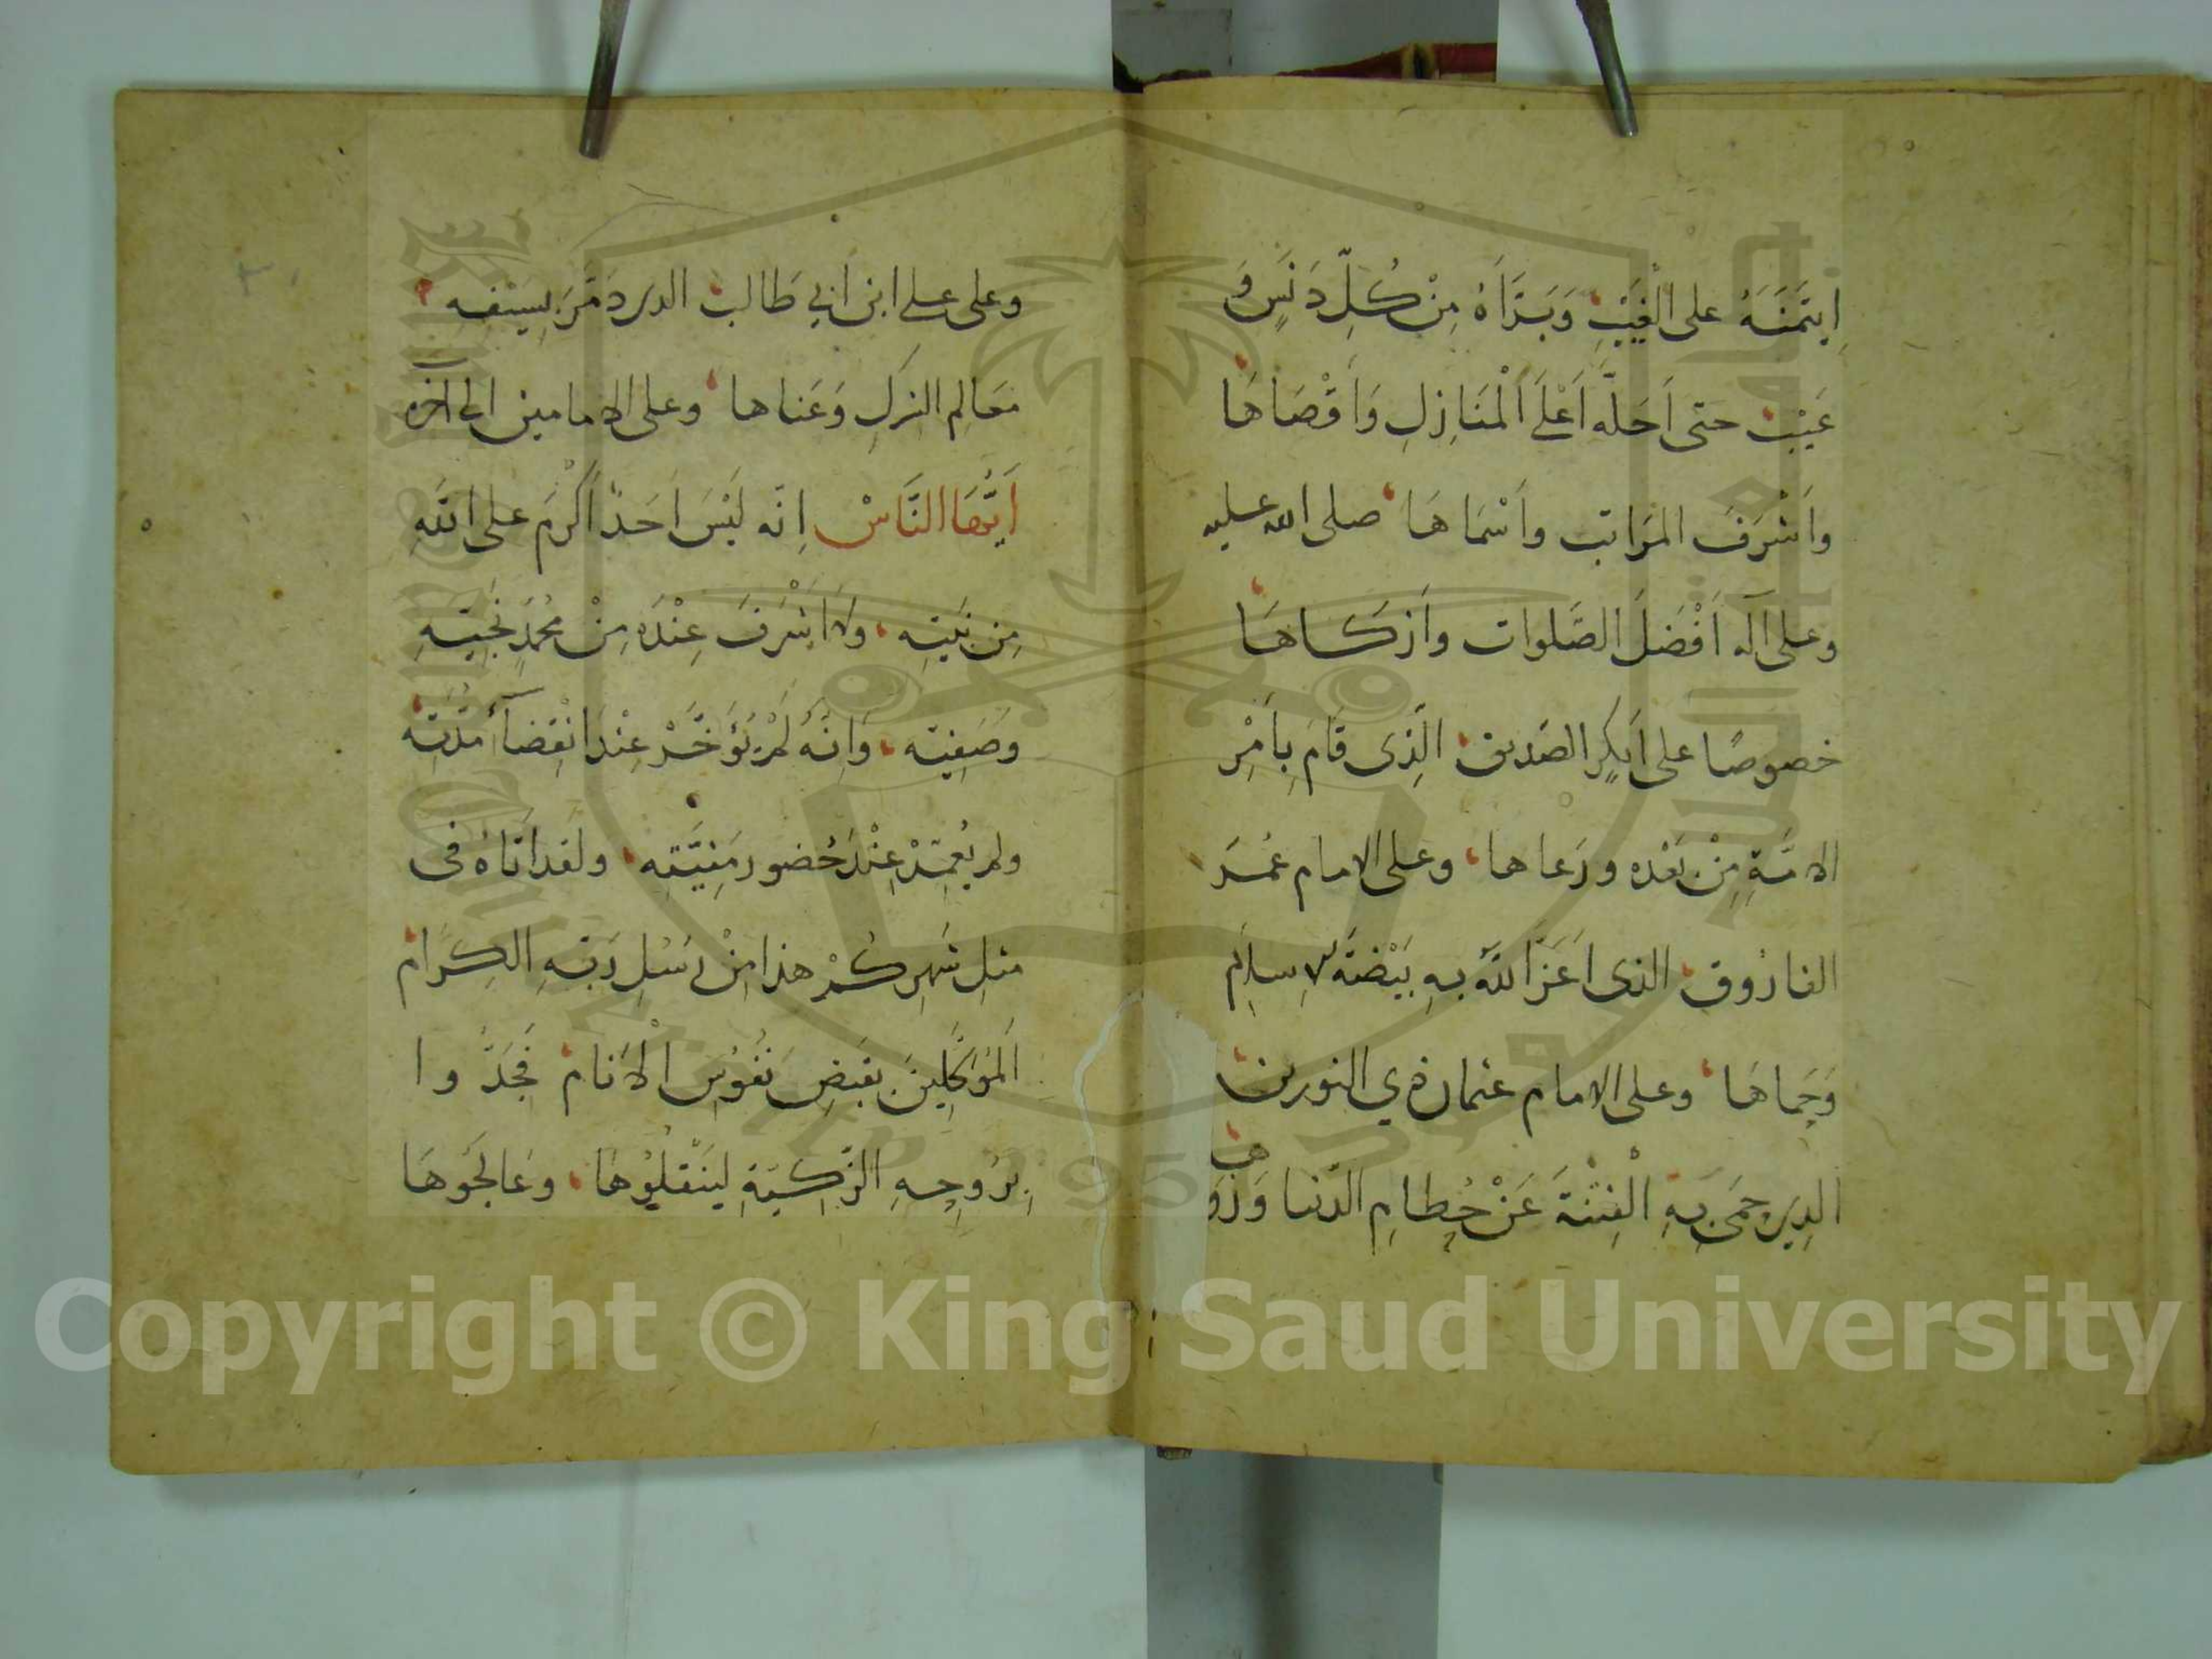 اِيتَمَنَهُ على الْغَيْبِ وَبَرَّأَهُ مِنْ كُلِّ دَنَسٍ وَ
عَيْبٍ حتى اَحَلَّه اَعْلَى اَلْمَنَازِلِ وَاَقْصَاهَا
وَاَشْرَفَ المَرَاتب واَسْمَاهَا صلى الله عليه
وعلى اله اَفْضَلَ الصَّلوات واَزكَاهَا
خصوصًا على اَبكرٍ الصّديق الَّذِى قَامَ بِاَمْرِ
الامّةِ مِنْ بَعْده ورَعاها وعلى الامام عُمَرَ
الفارُوق الذى اَعَزّ اللّهُ بهِ بَيْضَةَ الاِسلامِ
وَحِماهَا وعلى الامام عثمان ذي النورين
الذِى حمَى بِهِ الْفِتْنَةَ عَنْ حُطامِ الدّنيا وَزَوَ
هب
وعلى على ابن اَبي طَالب الذى دمَّرَ بِسَيْفِهِ
مَعَالم الشركِ وَعَناها وعلى الامامين الى آخره
اَيُّهَا النَّاسْ اِنّه لَيْسَ اَحَدٌ اَكْرَمَ على اللّهِ
مِن نَبيّهِ ولا اَشْرَفَ عِنْدَه مِنْ مُحمّدٍ نَجِيّهِ
وصَفِيّه وَاِنّهُ لَمْ يُؤَخَّرْ عِنْدَ انْقِضآءِ مُدّتِه
ولم يُعمّرْ عِنْدَ حُضور مَنِيَّتِه ولَقد اَتَاهُ فى
مثلِ شَهرِكُمْ هذا مِنْ رُسُلِ رَبّهِ الكِرَام
اَلمُوَكَّلِينَ بقَبضِ نُفُوسِ الْاَنام فَجَدّ وا
بِرُوحِهِ الزّكِيّةِ لِيَنْقلُوهَا وعَالجَوهَا
Copyright © King Saud University